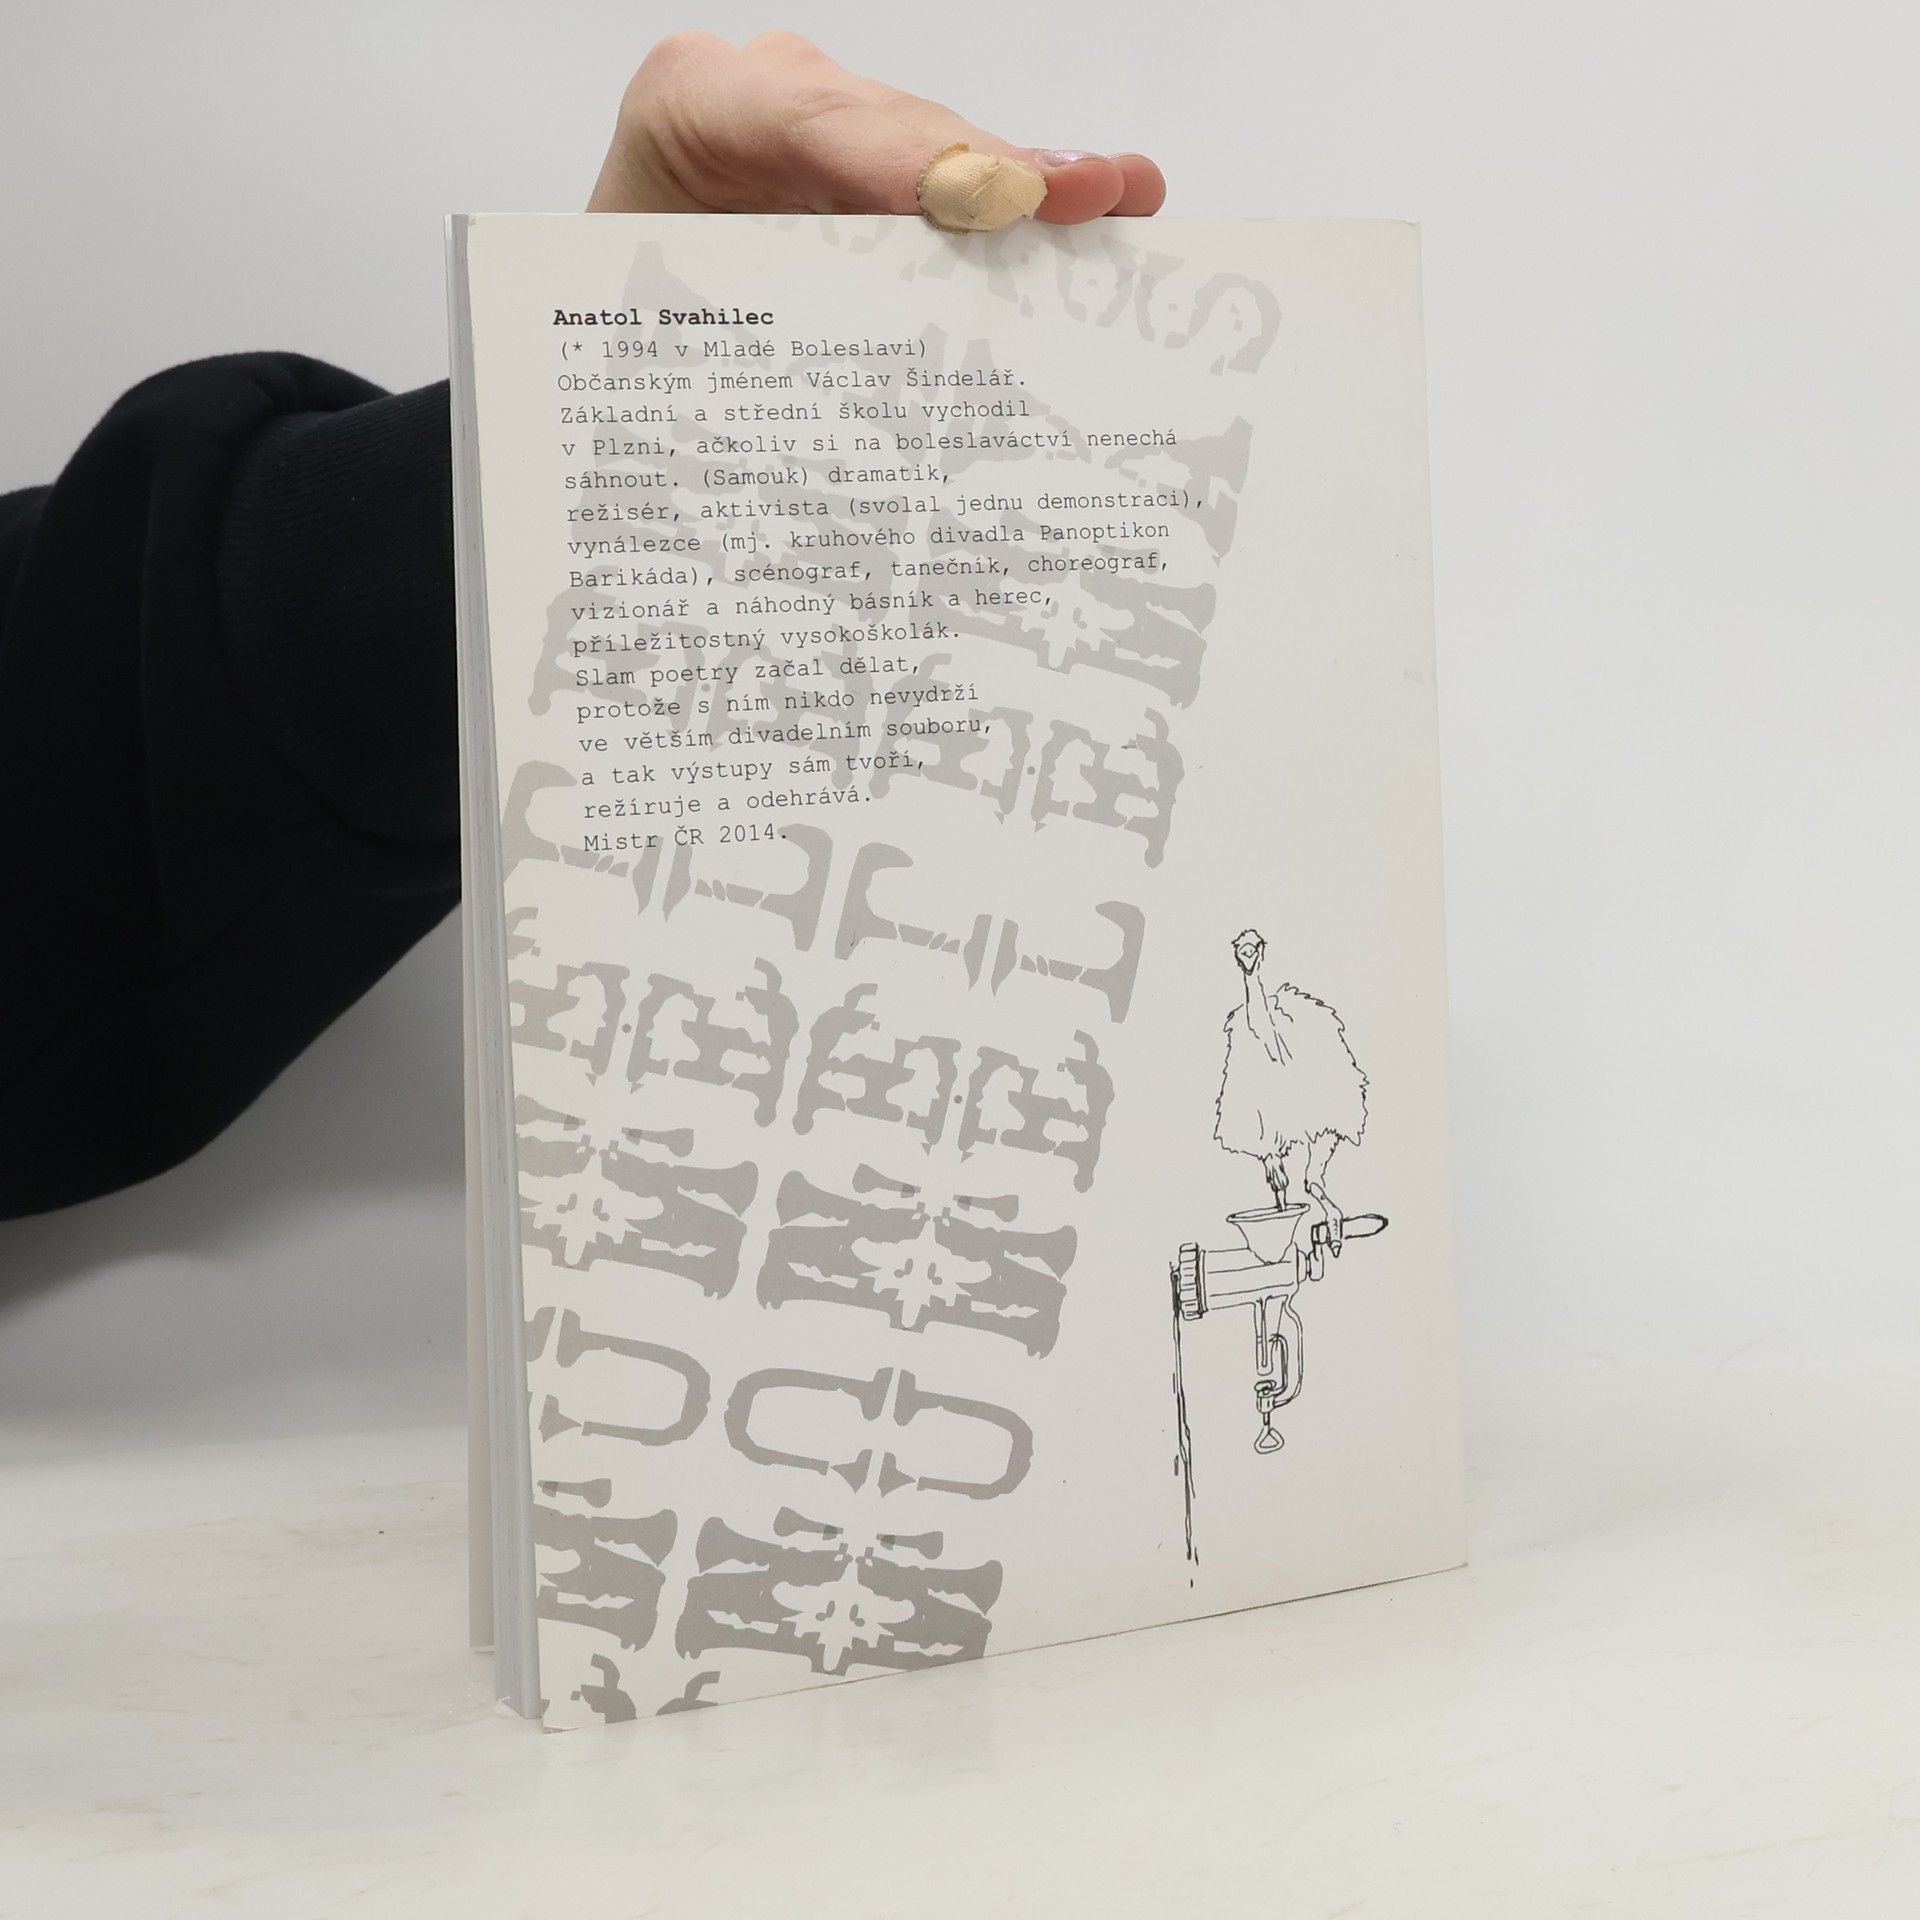 Anatol Svahilec
(* 1994 v Mladé Boleslavi)
Občanským jménem Václav Šindelář.
Základní a střední školu vychodil
v Plzni, ačkoliv si na boleslaváctví nenechá
sáhnout. (Samouk) dramatik,
režisér, aktivista (svolal jednu demonstraci),
vynálezce (mj. kruhového divadla Panoptikon
Barikáda), scénograf, tanečník, choreograf,
vizionář a náhodný básník a herec,
příležitostný vysokoškolák.
Slam poetry začal dělat,
protože s ním nikdo nevydrží
ve větším divadelním souboru,
a tak výstupy sám tvoří,
režíruje a odehrává.
Mistr ČR 2014.